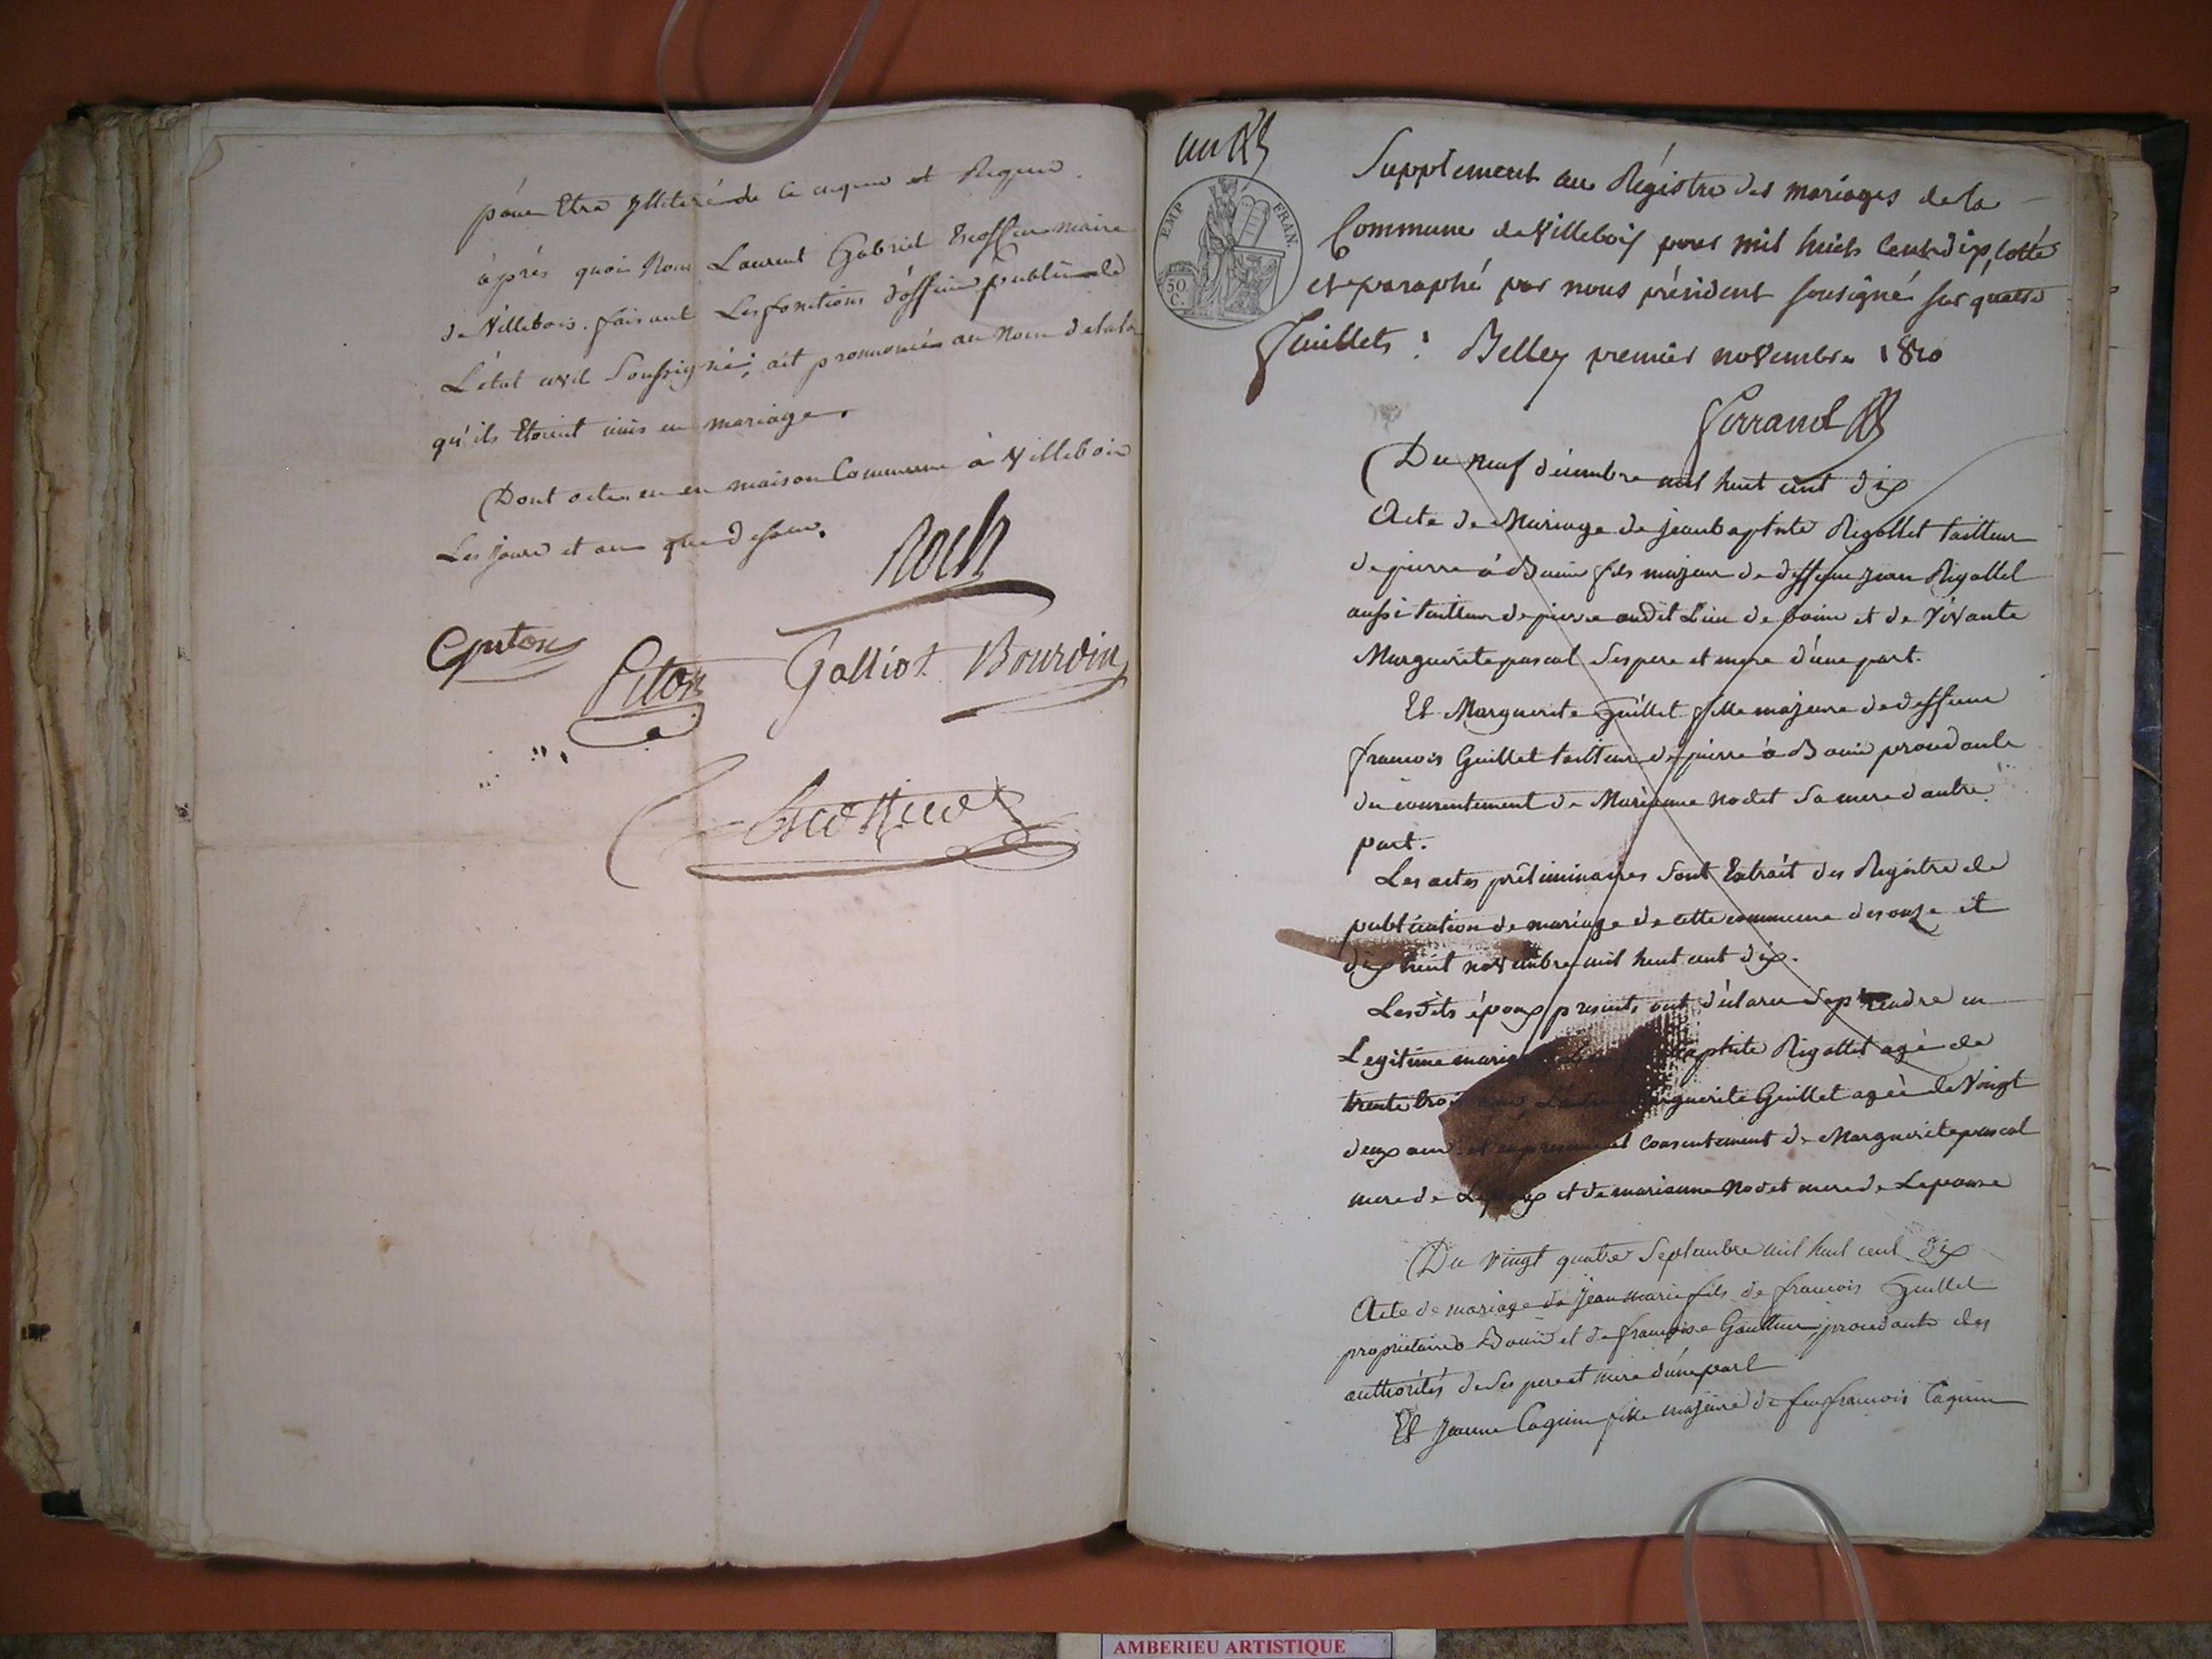 pour Etre illiteré de ce enquis et Requis.
après quoi Nous Laurent Gabriel Escoffier maire
de Villebois. faisant Les fonctions d'officier public de
L'état civil Soussigné; ait prononcé au Nom de la loi
qu'ils Etoient unis en mariage.
Dont acte, en maison Commune à Villebois
Les jours et an que dessus.
Roch
Cyuton
Piton
Galliot Bourdin
Escoffier
un
EMP FRAN.
50 C.
Supplement au Régistre des mariages de la
Commune de Villebois pour mil huit cent dix, cotté
et paraphé par nous président sousigné sur quatre
feuillets : Belley premier novembre 1810
Ferrand
Du neuf décembre mil huit cent dix
Acte de Mariage de jean baptiste Rigollet tailleur
de pierre à Bouis fils majeur de deffunt jean Rigollet
aussi tailleur de pierre audit Lieu de bouis et de vivante
Marguerite pascal ses pere et mere d'une part.
Et Marguerite Guillet fille majeure de deffunt
francois Guillet tailleur de pierre à Bouis procedante
du consentement de Marianne Nodet Sa mere d'autre
part.
Les actes préliminaires Sont Extrait des Registre de
publication de mariage de cette commune des onze et
dix huit novembre mil huit cent dix.
Lesdits époux presents ont déclaré se prendre en
Legitime mariage baptiste Rigollet agé de
trente trois ans, L'autre Marguerite Guillet agée de Vingt
deux ans et en presence et Consentement de Marguerite pascal
mere de Lepoux et de marianne Nodet mere de Lepouse
Du vingt quatre Septembre mil huit cent dix
Acte de mariage de Jean marie fils de francois Guillet
propriétaire à Bouis et de françoise Gauthier, procedant des
authorités de Ses pere et mere d'une part
Et Jeanne Caquin fille majeure de feu francois Caquin
AMBERIEU ARTISTIQUE